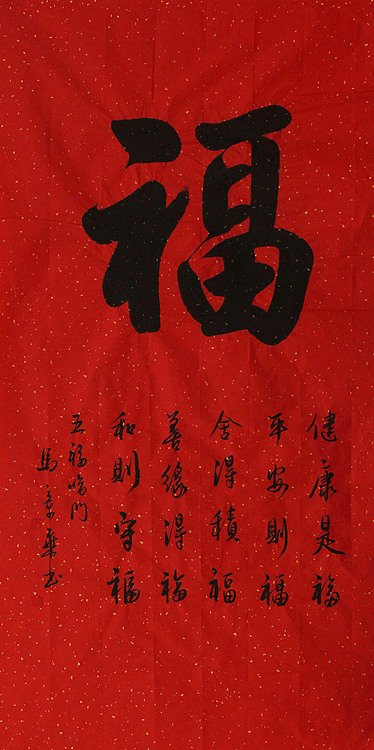 福
健康是福
平安則福
舍得積福
善緣得福
和則守福
五福臨門
馬京華书